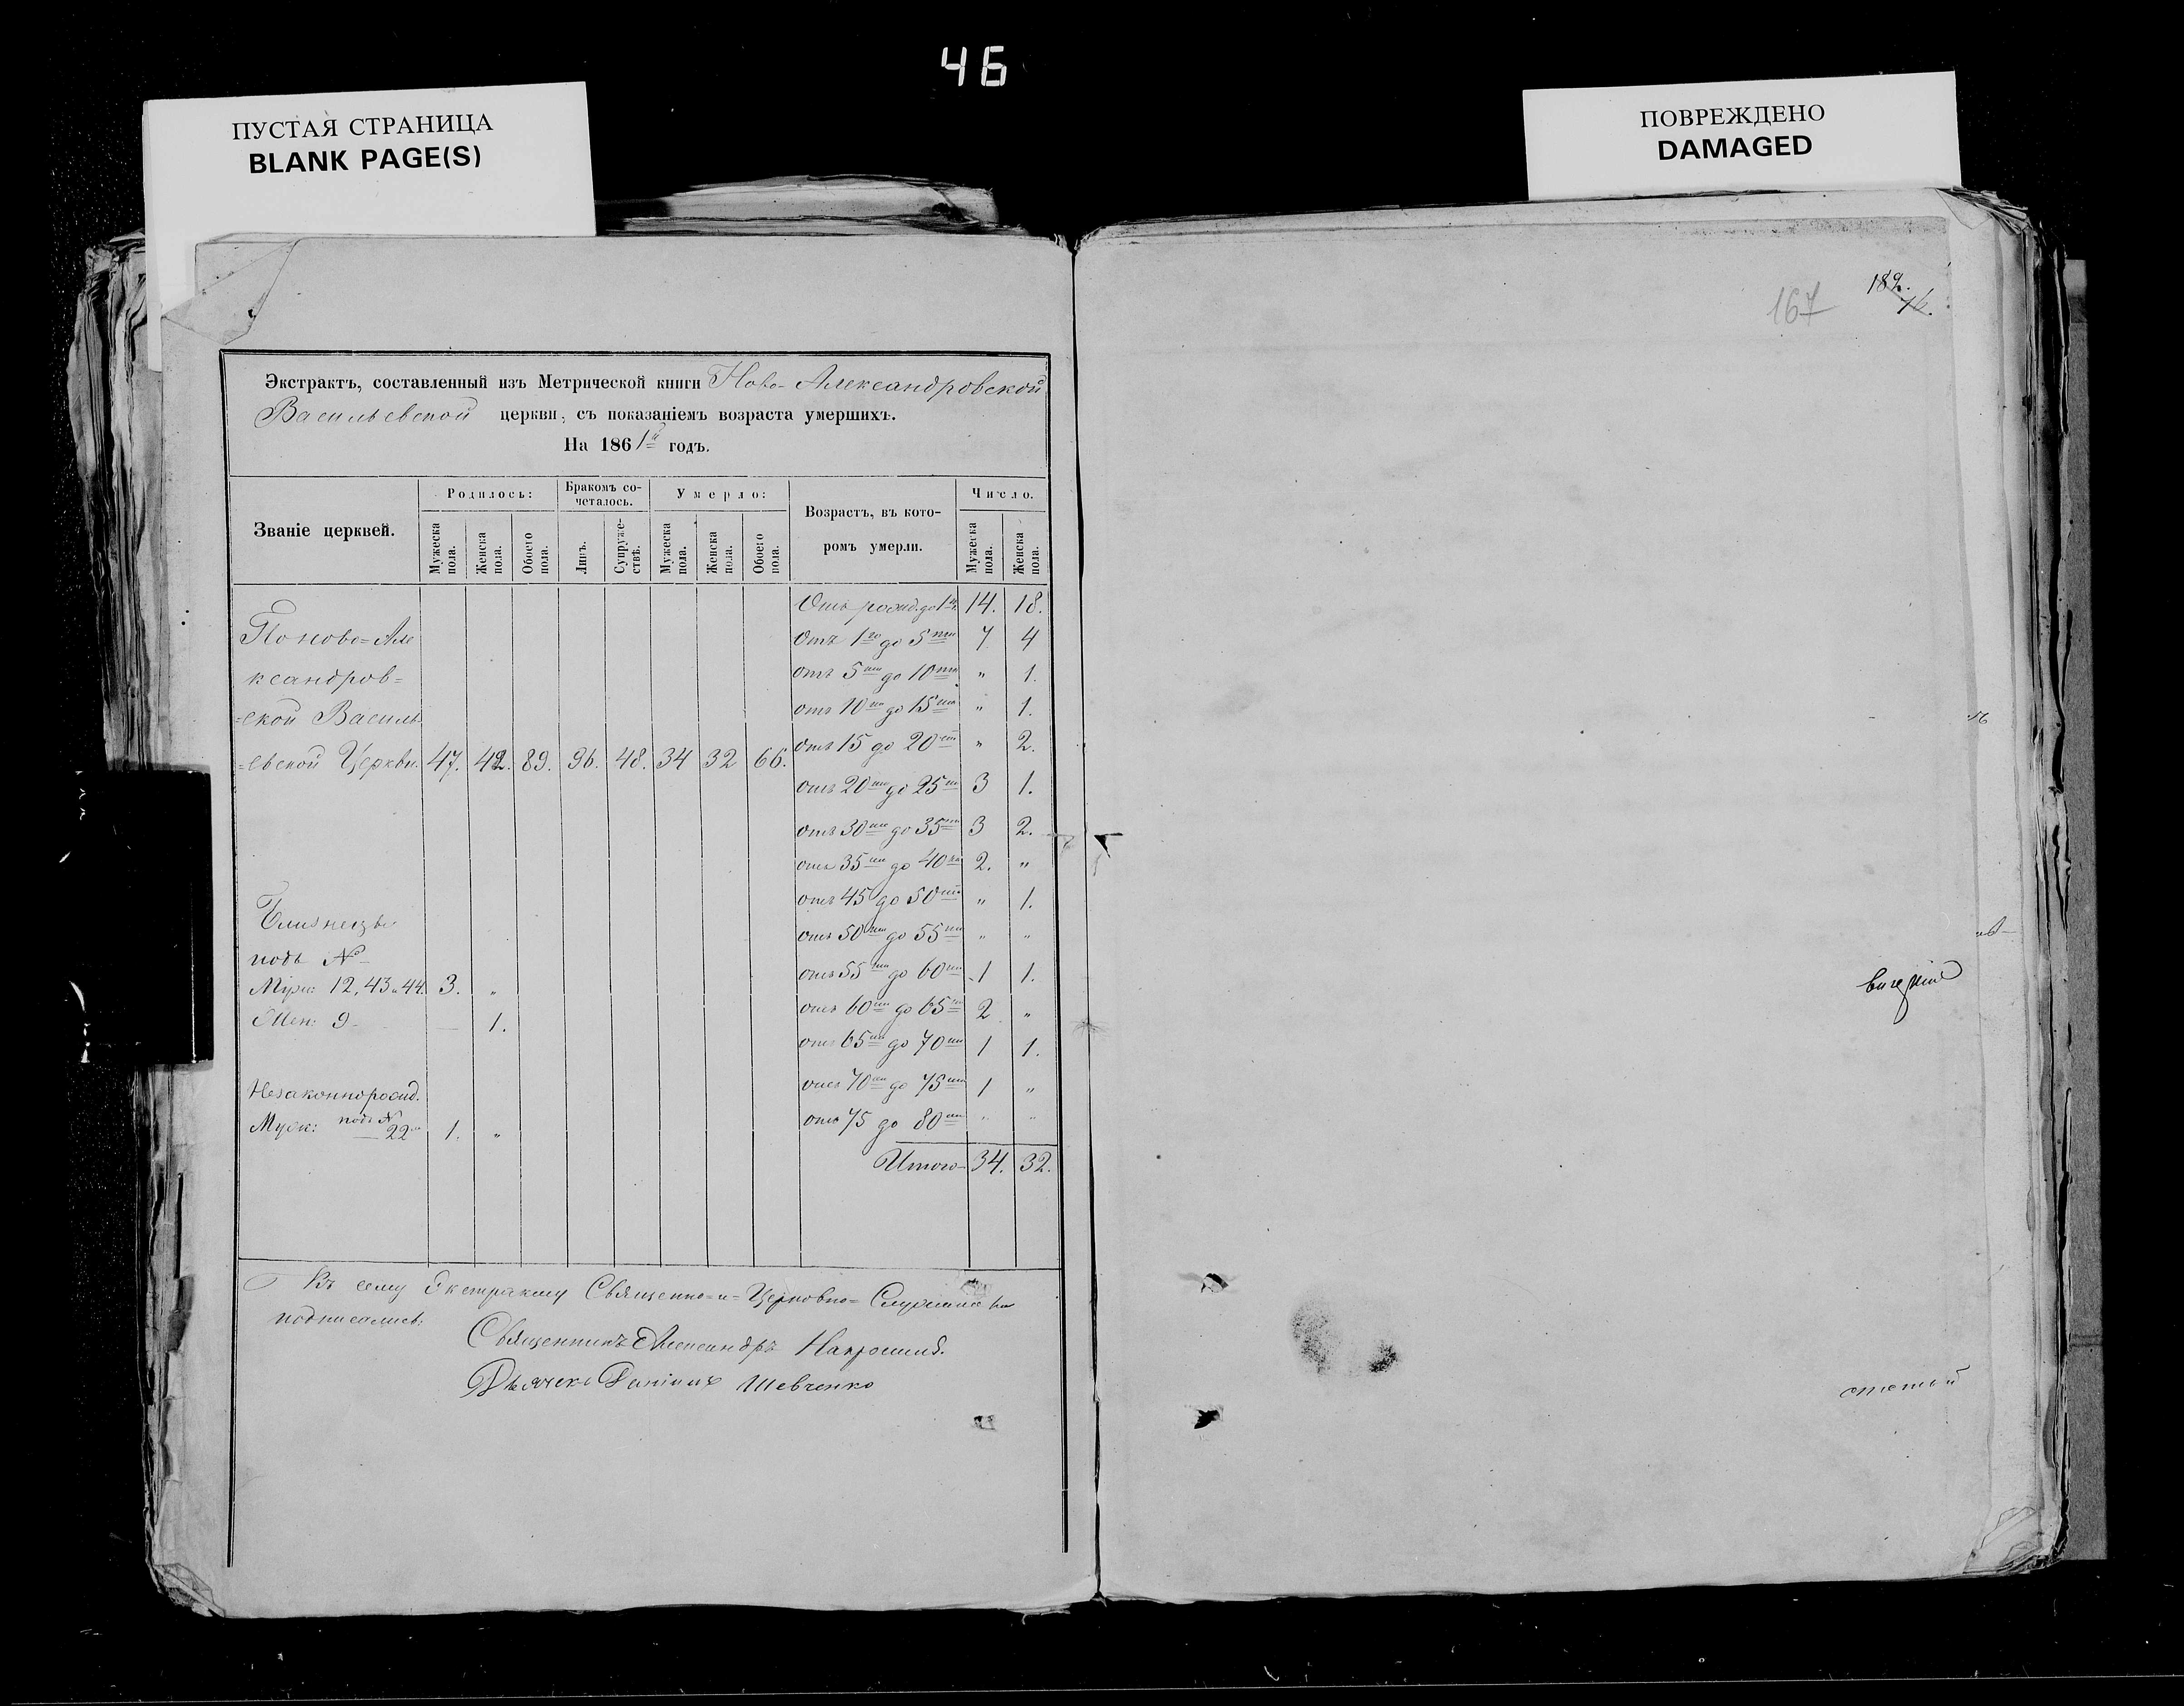 46
ПУСТАЯ СТРАНИЦА
BLANK PAGE(S)
ПОВРЕЖДЕНО
DAMAGED
Экстрактъ, составленный изъ Метрической книги Ново-Александровской
Васильевской церкви, съ показаніемъ возраста умершихъ.
На 1861й годъ.
Званіе церквей.
Родилось:
Бракомъ со-
четалось.
Умерло:
Возрастъ, въ кото-
ромъ умерли.
Число.
Мужеска пола.
Женска пола.
Обоего пола.
Лицъ.
Супруже-
ствъ.
Мужеска пола.
Женска пола.
Обоего пола.
Мужеска пола.
Женска пола.
Отъ рожд. до 1го 14. 18.
По ново=Але
отъ 1го до 5ти 7 4
ксандров=
отъ 5ти до 10ти " 1.
отъ 10ти до 15ти " 1.
=ской Василь
отъ 15 до 20ти " 2.
=евской Церкви. 47. 42. 89. 96. 48. 34 32 66.
отъ 20ти до 25ти 3 1.
отъ 30ти до 35ти 3 2.
отъ 35ти до 40ти 2. "
отъ 45 до 50ти " 1.
Близнецы
отъ 50ти до 55ти " "
подъ №
отъ 55ти до 60ти 1 1.
Муж: 12, 43 и 44. 3. "
отъ 60ти до 65ти 2 "
Жен: 9 — 1.
отъ 65ти до 70ти 1 1.
отъ 70ти до 75ти 1 "
Незаконнорожд.
Муж: подъ № 22 1. "
отъ 75 до 80ти " "
Итого 34. 32.
Къ сему Екстракту Священно=и=Церковно=Служители
подписались:
Священникъ Александръ
Дьячекъ Даніилъ Шевченко
167
182.
76.